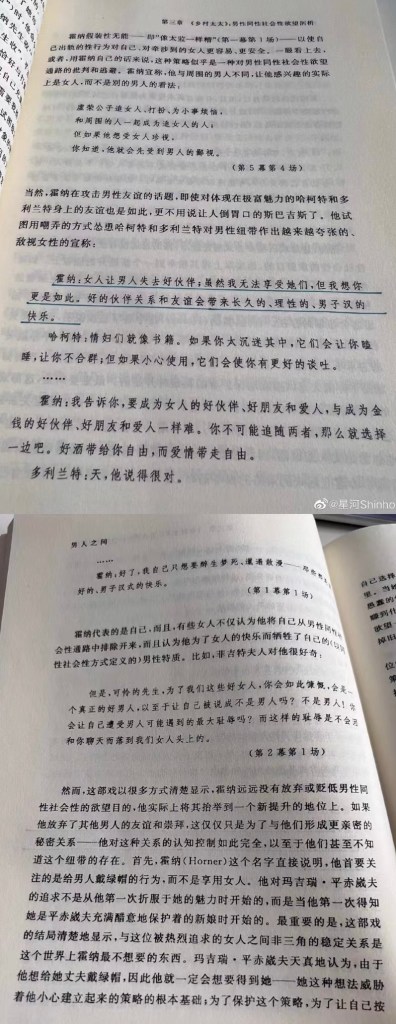 第三章 《乡村太太》:男性同性社会性欲望剖析
霍纳假装性无能——却“像太监一样糟”(第一幕第1场)——以使自
己出轨的性行为对自己、对牵涉到的女人更容易、更安全。一眼看上去,
或者,用霍纳自己的话来说,这种策略似乎是一种对男性同性社会性欲望
通路的批判和逃避。霍纳宣称,他与周围的男人不同,让他感兴趣的实际
上是女人,而不是别的男人的看法:
虚荣公子追女人、打扮、为小事烦恼,
和周围的人一起成为追女人的人;
但如果他想受女人珍视。
你知道,他就会先受到男人的鄙视。
(第5幕第4场)
当然,霍纳在攻击男性友谊的话题,即使对体现在极富魅力的哈柯特和多
利兰特身上的友谊也是如此,更不用说让人倒胃口的斯巴吉斯了。他试
图用嘲弄的方式怂恿哈柯特和多利兰特对男性纽带作出越来越夸张的、
敌视女性的宣称:
霍纳:女人让男人失去好伙伴;虽然我无法享受她们,但我想你
更是如此。好的伙伴关系和友谊会带来长久的、理性的、男子汉的
快乐。
哈柯特:情妇们就像书籍。如果你太沉迷其中,它们会让你瞌
睡,让你不合群;但如果小心使用,它们会使你有更好的谈吐。
……
霍纳:我告诉你,要成为女人的好伙伴、好朋友和爱人,与成为金
钱的好伙伴、好朋友和爱人一样难。你不可能追随两者,那么就选择
一边吧。好酒带给你自由,而爱情带走自由。
多利兰特:天,他说得很对。
@星河Shinho
男人之间
……
霍纳:好了,我自己只想要醉生梦死、邋遢散漫——
好的、男子汉式的快乐。
(第1幕第1场)
霍纳代表的是自己,而且,有些女人不仅认为他将自己从男性同性
会性通路中排除开来,而且认为他为了女人的快乐而牺牲了自己的
性社会性方式定义的)男性特质。比如,菲吉特夫人对他很好奇:
但是,可怜的先生,为了我们这些好女人,你会如此慷慨,会是一
个真正的好男人,以至于让自己被说成不是男人吗?不是男人!
会让自己遭受男人可能遇到的最大耻辱吗?而这样的耻辱是不会因
和你聊天而落到我们女人头上的。
(第2幕第1场)
然而,这部戏以很多方式清楚显示,霍纳远远没有放弃或贬低男性同
性社会性的欲望目的,他实际上将其抬举到一个新提升的地位上。如果
他放弃了其他男人的友谊和崇拜,这仅仅只是为了与他们形成更亲密的
秘密关系——他对这种关系的认知控制如此完全,以至于他们甚至不知
道这个纽带的存在。首先,霍纳(Horner)这个名字直接说明,他首要关
注的是给男人戴绿帽的行为,而不是享用女人。他对玛吉瑞·平赤崴夫
的追求不是从他第一次折服于她的魅力时开始的,而是当他第一次得知
她是平赤崴夫充满醋意地保护着的新娘时开始的。最重要的是,这部戏
的结局清楚地显示,与这位被热烈追求的女人之间非三角的稳定关系是
这个世界上霍纳最不想要的东西。玛吉瑞·平赤崴夫天真地认为,由于
他想给她丈夫戴绿帽,因此他就一定会想要得到她——她这种想法威胁
着他小心建立起来的策略的根本基础;为了保护这个策略,为了让自己按